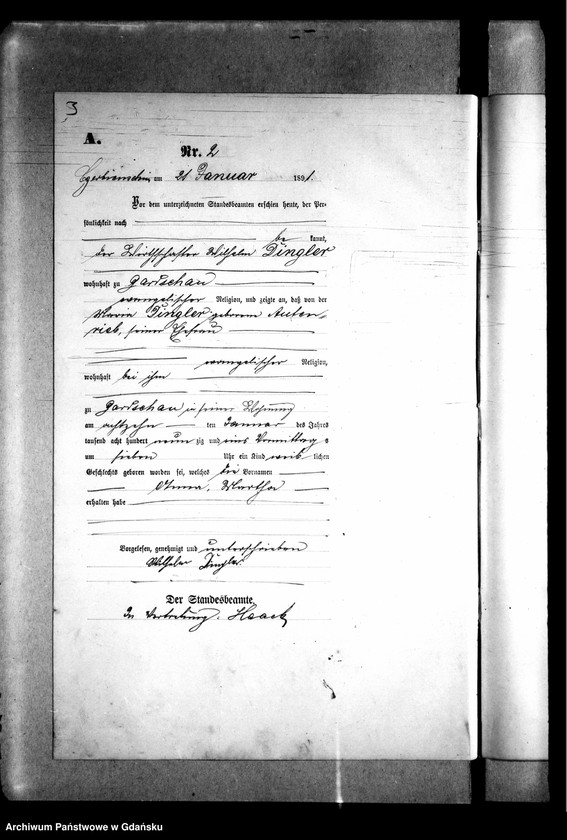 3
A.
Nr. 2
am 21 Januar 1891.
Vor dem unterzeichneten Standesbeamten erschien heute, der Per-
sönlichkeit nach
be kannt,
der Wirthschafter Wilhelm Dingler
wohnhaft zu Gartschau
evangelischer Religion, und zeigte an, daß von der
Maria Dingler geborene Auten-
rieb, seiner Ehefrau
evangelischer Religion,
wohnhaft bei ihm
zu Gartschau in seiner Wohnung
am achtzehn ten Januar des Jahres
tausend acht hundert neun zig und eins Vormittag s
um sieben Uhr ein Kind weib lichen
Geschlechts geboren worden sei, welches die Vornamen
Anna, Martha
erhalten habe
Vorgelesen, genehmigt und unterschrieben
Wilhelm Dingler
Der Standesbeamte
In Vertretung. Haack
Archiwum Państwowe w Gdańsku